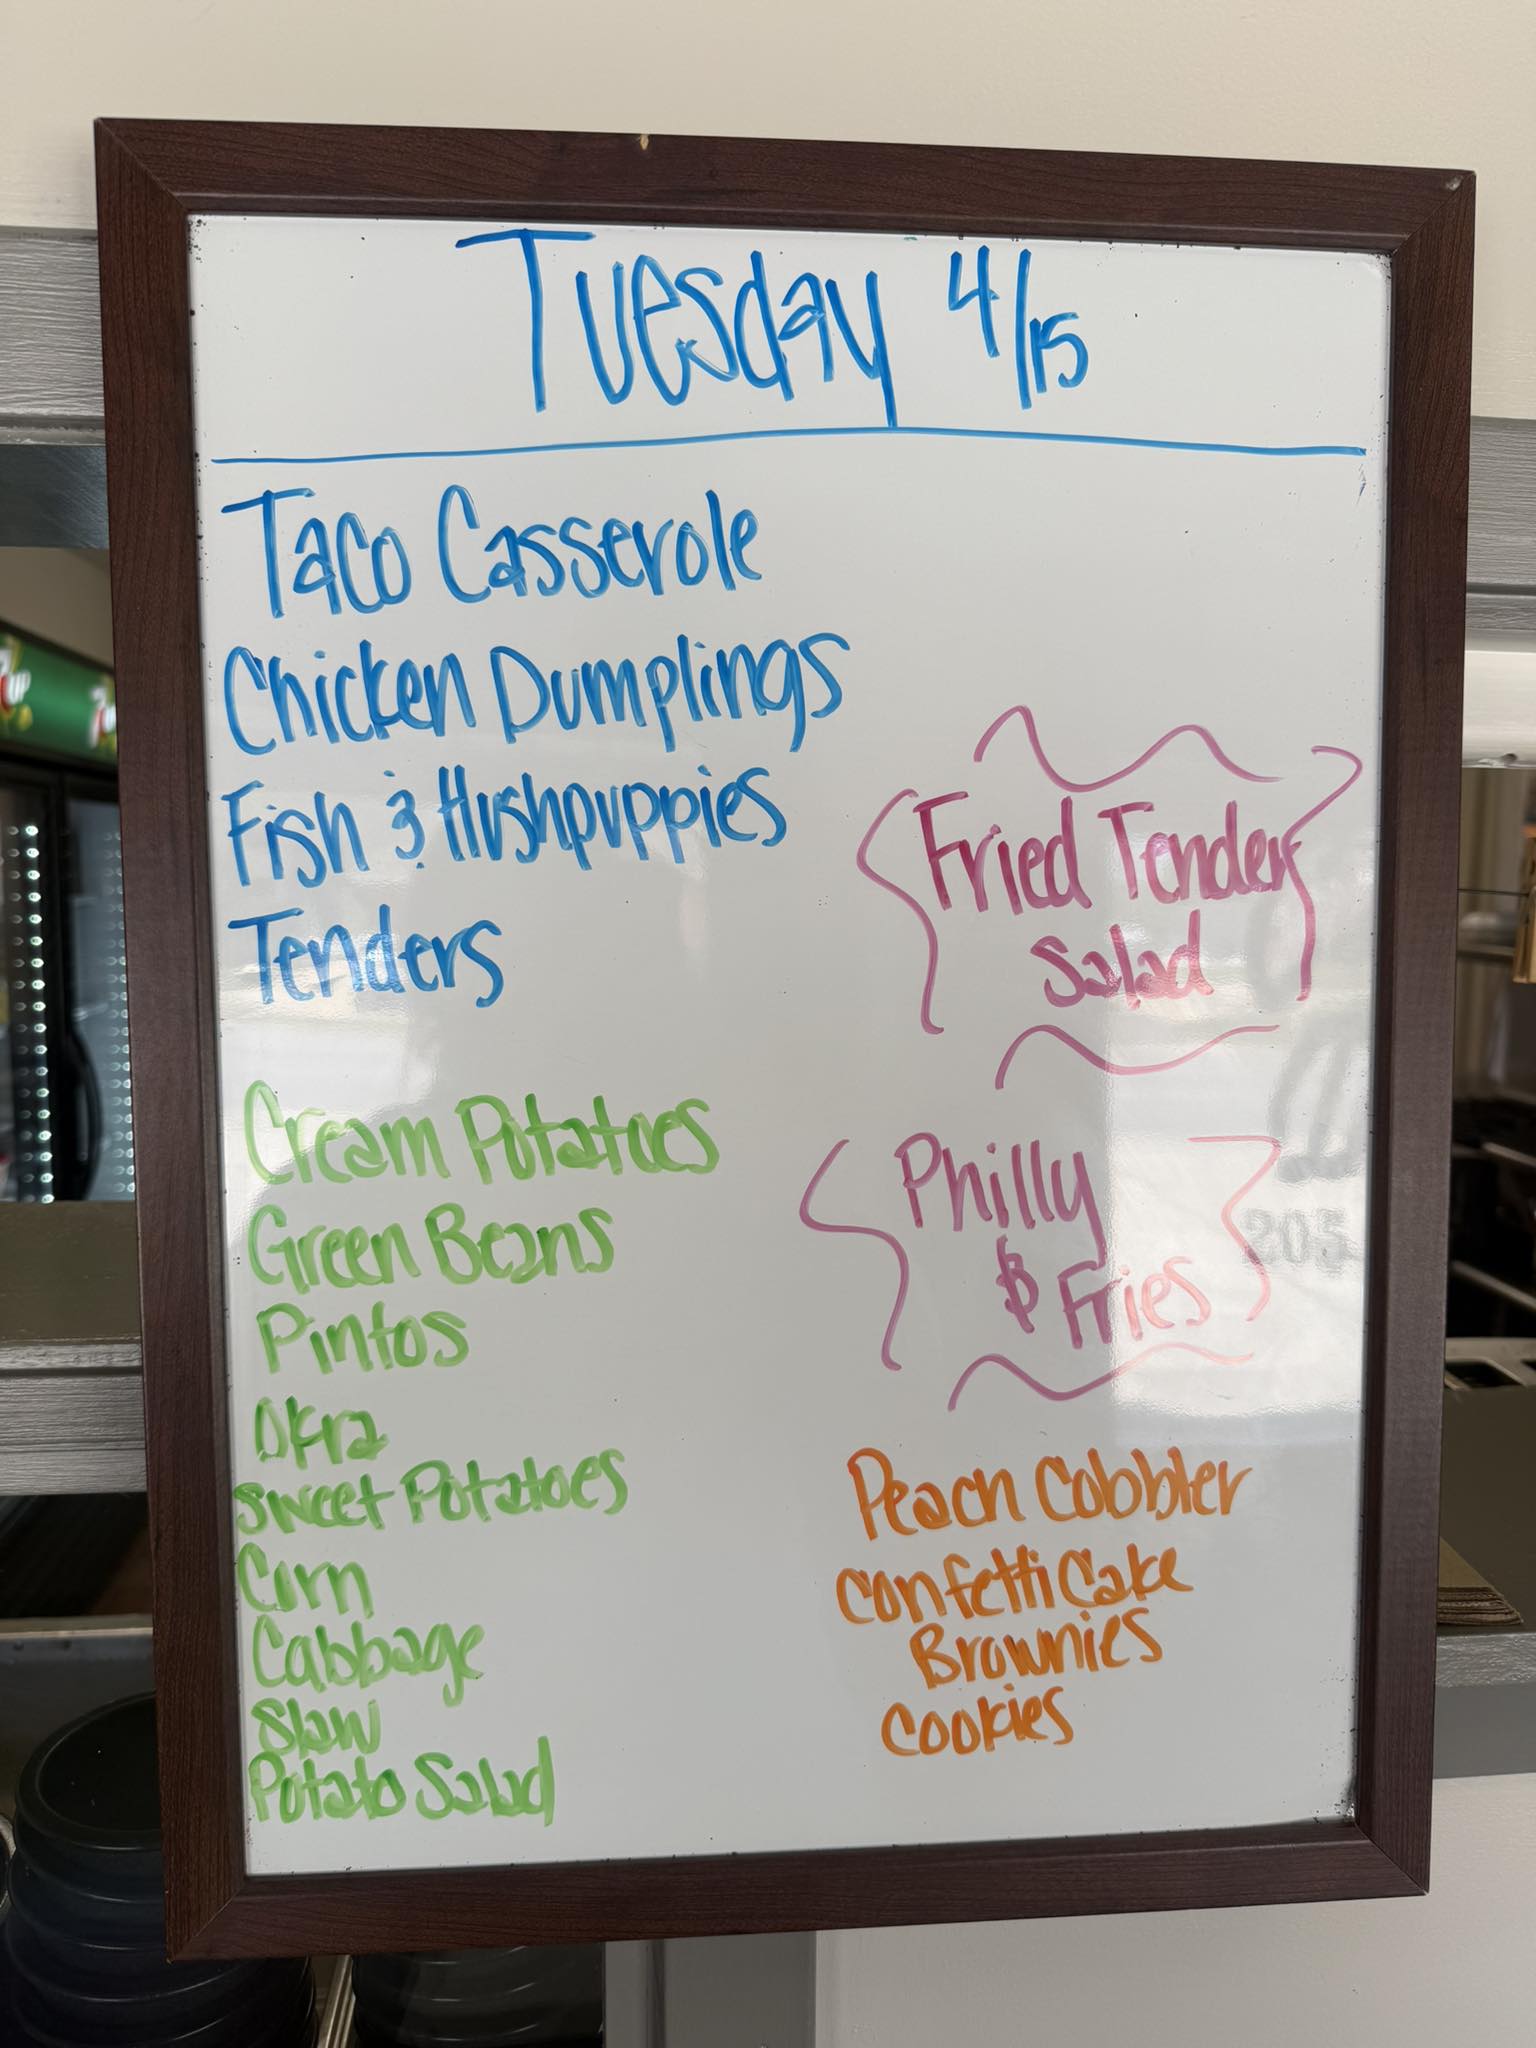 Tuesday 4/15
Taco Casserole
Chicken Dumplings
Fish & Hushpuppies
Tenders
Cream Potatoes
Green Beans
Pintos
Okra
Sweet Potatoes
Corn
Cabbage
Slaw
Potato Salad
Fried Tender
Salad
Philly
& Fries
Peach Cobbler
Confetti Cake
Brownies
Cookies
205
7UP